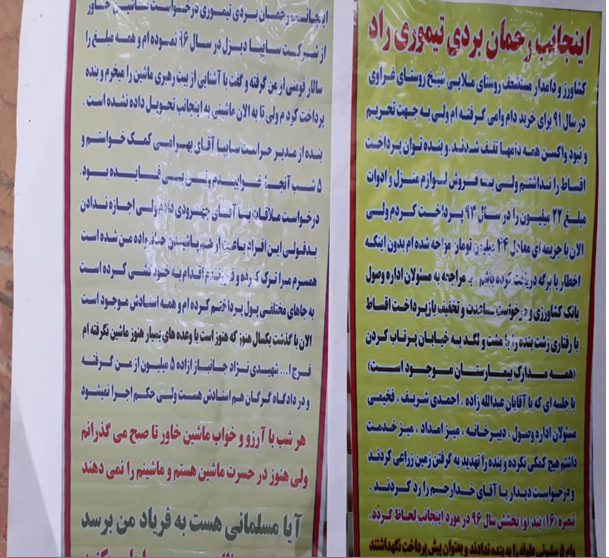 اینجانب رحمان بردي تیموری راد
کشاورز و دامدار مستضعف روستای ملایی شیخ روستای غراوی
در سال ۹۱ برای خرید دام وامی گرفته ام ولی به جهت تحریم
و نبود واکسن همه دامها تلف شدند. و بنده توان پرداخت
اقساط را نداشتم ولی با فروش لوازم منزل و ادوات
مبلغ ۲۲ میلیون را در سال ۹۳ پرداخت کردم ولی
الان با جریمه ای معادل ۲۴ میلیون تومان مواجه شده ام بدون اینکه
اخطار یا برگه دریافت کرده باشم. با مراجعه به مسئولان اداره وصول
بانک کشاورزی و درخواست مساعدت و تخفیف بازپرداخت اقساط
با رفتاری زشت بنده را با مشت و لگد به خیابان پرتاب کردن
(همه مدارک بیمارستان موجود است)
با جلسه ای که با آقایان عبدالله زاده . احمدی شریف . فخیمی
مسئولان اداره وصول . دبیرخانه . میز امداد . میز خدمت
داشتم هیچ کمکی نکرده و بنده را تهدید به گرفتن زمین زراعی کردند
و درخواست دیدار با آقای خدارحم را رد کردند .
تبصره (۱۶) بند (و) بخشش سال ۹۶ در مورد اینجانب لحاظ نکردند.
به بنده ندادند و بعنوان پیش پرداخت نگهداشتند
اینجانب رحمان بردی تیموری درخواست ماشین خاور
از شرکت سایپا دیزل در سال ۹۶ نموده ام و همه مبلغ را
سالار قوشی از من گرفته و گفت با آشنایی از بیت رهبری ماشین را میخرم و بنده
پرداخت کردم ولی تا به الان ماشینی به اینجانب تحویل داده نشده است .
بنده از مدیر حراست سایپا آقای بهرامی کمک خواستم و
۵ شب آنجا خوابیدم ولی بی فایده بود.
درخواست ملاقات با آقای جهرودی دادم ولی اجازه ندادن
بدقولی این افراد باعث از هم پاشیدن خانواده من شده است
همسرم مرا ترک کرده و فرزندم اقدام به خود کشی کرده است
به جاهای مختلفی پول پرداختم کرده ام و همه اسنادش موجود است
الان با گذشت یکسال هنوز که هنوز است با وعده های بسیار هنوز ماشین نگرفته ام
فرج ا... شهیدی نژاد جانباز آزاده ۵ میلیون از من گرفته
و در دادگاه گرگان هم اسنادش هست ولی حکم اجرا نمیشود
هر شب با آرزو و خواب ماشین خاور تا صبح می گذرانم
ولی هنوز در حسرت ماشین هستم و ماشینم را نمی دهند
آیا مسلمانی هست به فریاد من برسد